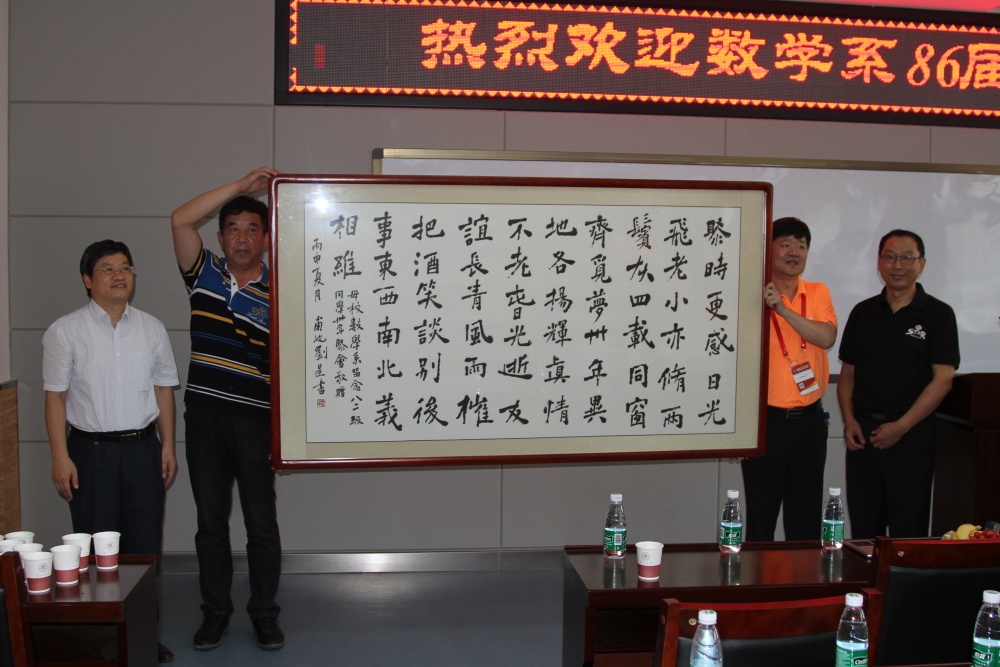 热烈欢迎数学系86届
聚時更感日光
飛老小亦脩兩
鬢灰四載同窗
齊覓夢卅年異
地各揚輝真情
不老旹光逝友
誼長青風雨摧
把酒笑談別後
事東西南北義
相維
母校數學系留念八二級
同學卅年聚會敬贈
丙申夏月
劉星書